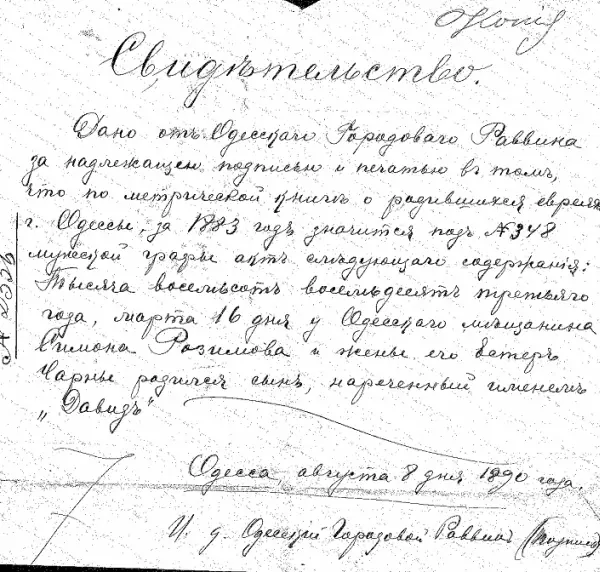 Копія
Свидѣтельство.
Дано отъ Одесскаго Городоваго Раввина
за надлежащею подписью и печатью въ томъ,
что по метрической книгѣ о родившихся евреяхъ
г. Одессы, за 1883 годъ значится подъ №348
мужской графы актъ слѣдующаго содержанія:
Тысяча восемьсотъ восемьдесятъ третьяго
года, марта 16 дня у Одесскаго мѣщанина
Симона Розимова и жены его Естеръ
Чарны родился сынъ, нареченный именемъ
„Давидъ"
Одесса, августа 8 дня 1890 года.
И. д. Одесскій Городовой Раввинъ (подпись)